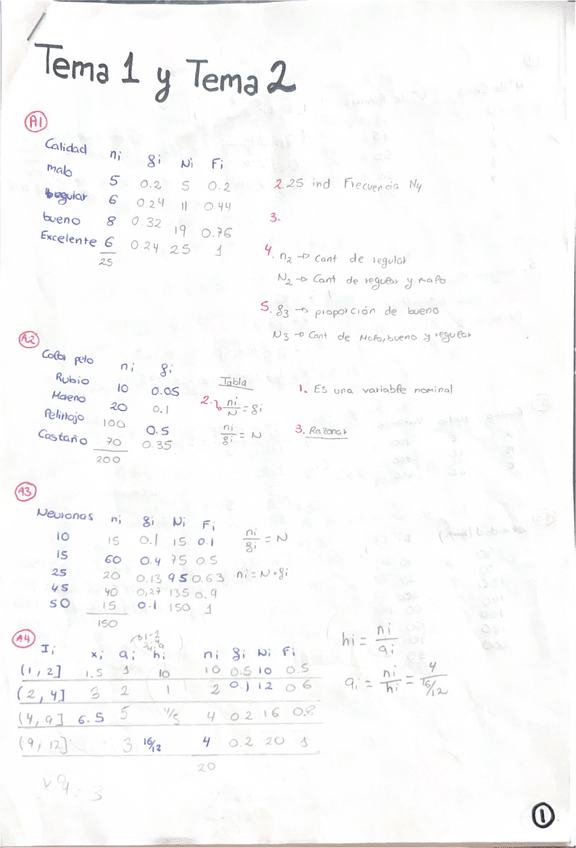 Tema 1 y Tema 2
A1
Calidad ni fi Ni Fi
malo 5 0.2 5 0.2
regular 6 0.24 11 0.44
bueno 8 0.32 19 0.76
Excelente 6 0.24 25 1
25
2. 25 ind Frecuencia N4
3.
4. n2 → Cant de regular
N2 → Cant de regular y malo
5. f3 → proporción de bueno
N3 → Cant de malo, bueno y regular
A2
Color pelo ni fi
Rubio 10 0.05
Moreno 20 0.1
Pelirrojo 100 0.5
Castaño 70 0.35
200
Tabla
2. ni/N = fi
ni/fi = N
1. Es una variable nominal
3. Razonar
A3
Neuronas ni fi Ni Fi
10 15 0.1 15 0.1
15 60 0.4 75 0.5
25 20 0.13 95 0.63
45 40 0,27 135 0.9
50 15 0.1 150 1
150
ni/fi = N
ni = N · fi
A4
Ii xi ai hi ni fi Ni Fi
(1, 2] 1.5 1 10 10 0.5 10 0.5
(2, 4] 3 2 1 2 0.1 12 0.6
(4, 9] 6.5 5 4/5 4 0.2 16 0.8
(9, 12] 3 16/12 4 0.2 20 1
20
hi = ni/ai
ai = ni/hi = 4/16/12
1